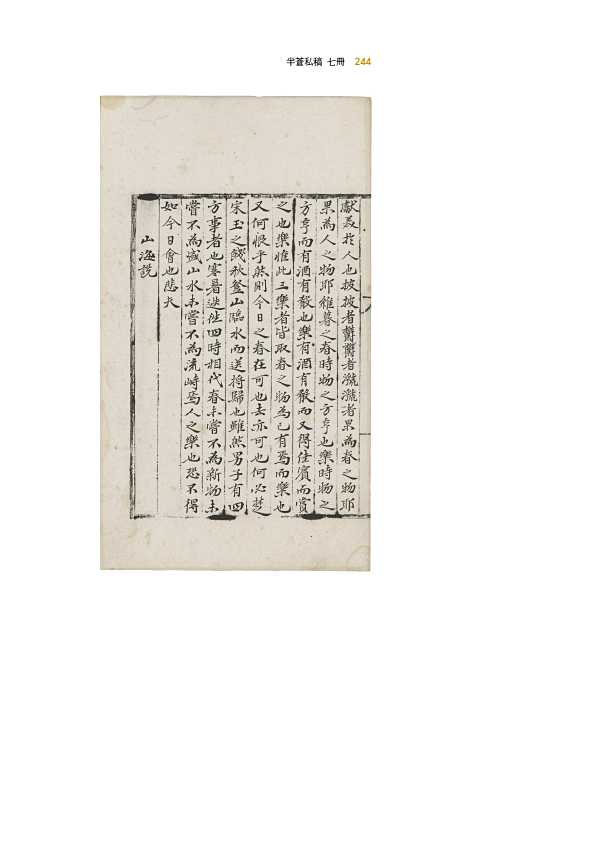 半蒼私稿 七冊 244
獻羙於人也披披者欝欝者瀧瀧者果為春之物耶
果為人之物耶維暮之春時物之方亨也樂時物之
方亨而有酒有殽也樂有酒有殽而又得佳賓而賞
之也樂惟此三樂者皆取春之物為已有焉而樂也
又何恨乎然則今日之春在可也去亦可也何必楚
宋玉之餞秋登山臨水而送將歸也雖然男子有四
方事者也寒暑迭徃四時相代春未嘗不為新物未
嘗不為盛山水未嘗不為流峙焉人之樂也恐不得
如今日會也悲夫
山海說